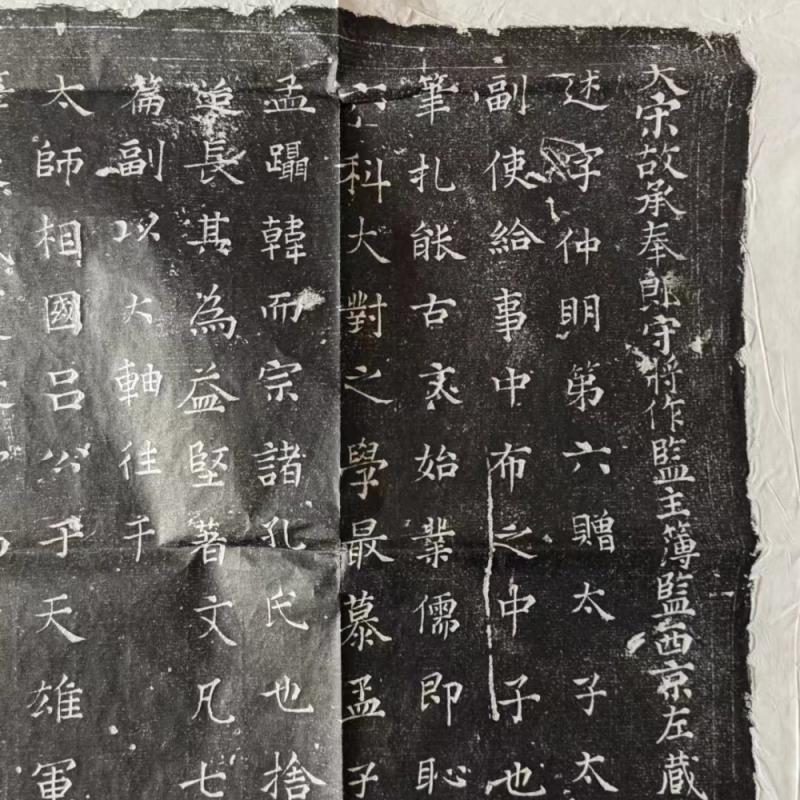 大宋故承奉郎守將作監主簿監西京左藏
述字仲明第六贈太子太
副使給事中布之中子也
筆札能古文始業儒即恥
科大對之學最慕孟子
孟躡韓而宗諸孔氏也捨
道長其為益堅著文凡七
篇副以大軸往干
太師相國呂公于天雄軍